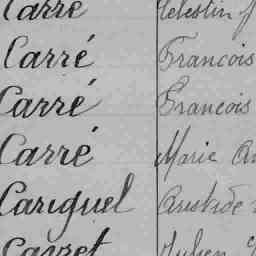 Carré Célestin
Carré Francois
Carré Francois
Carré Marie
Cariguel Aristide
Carret Julien